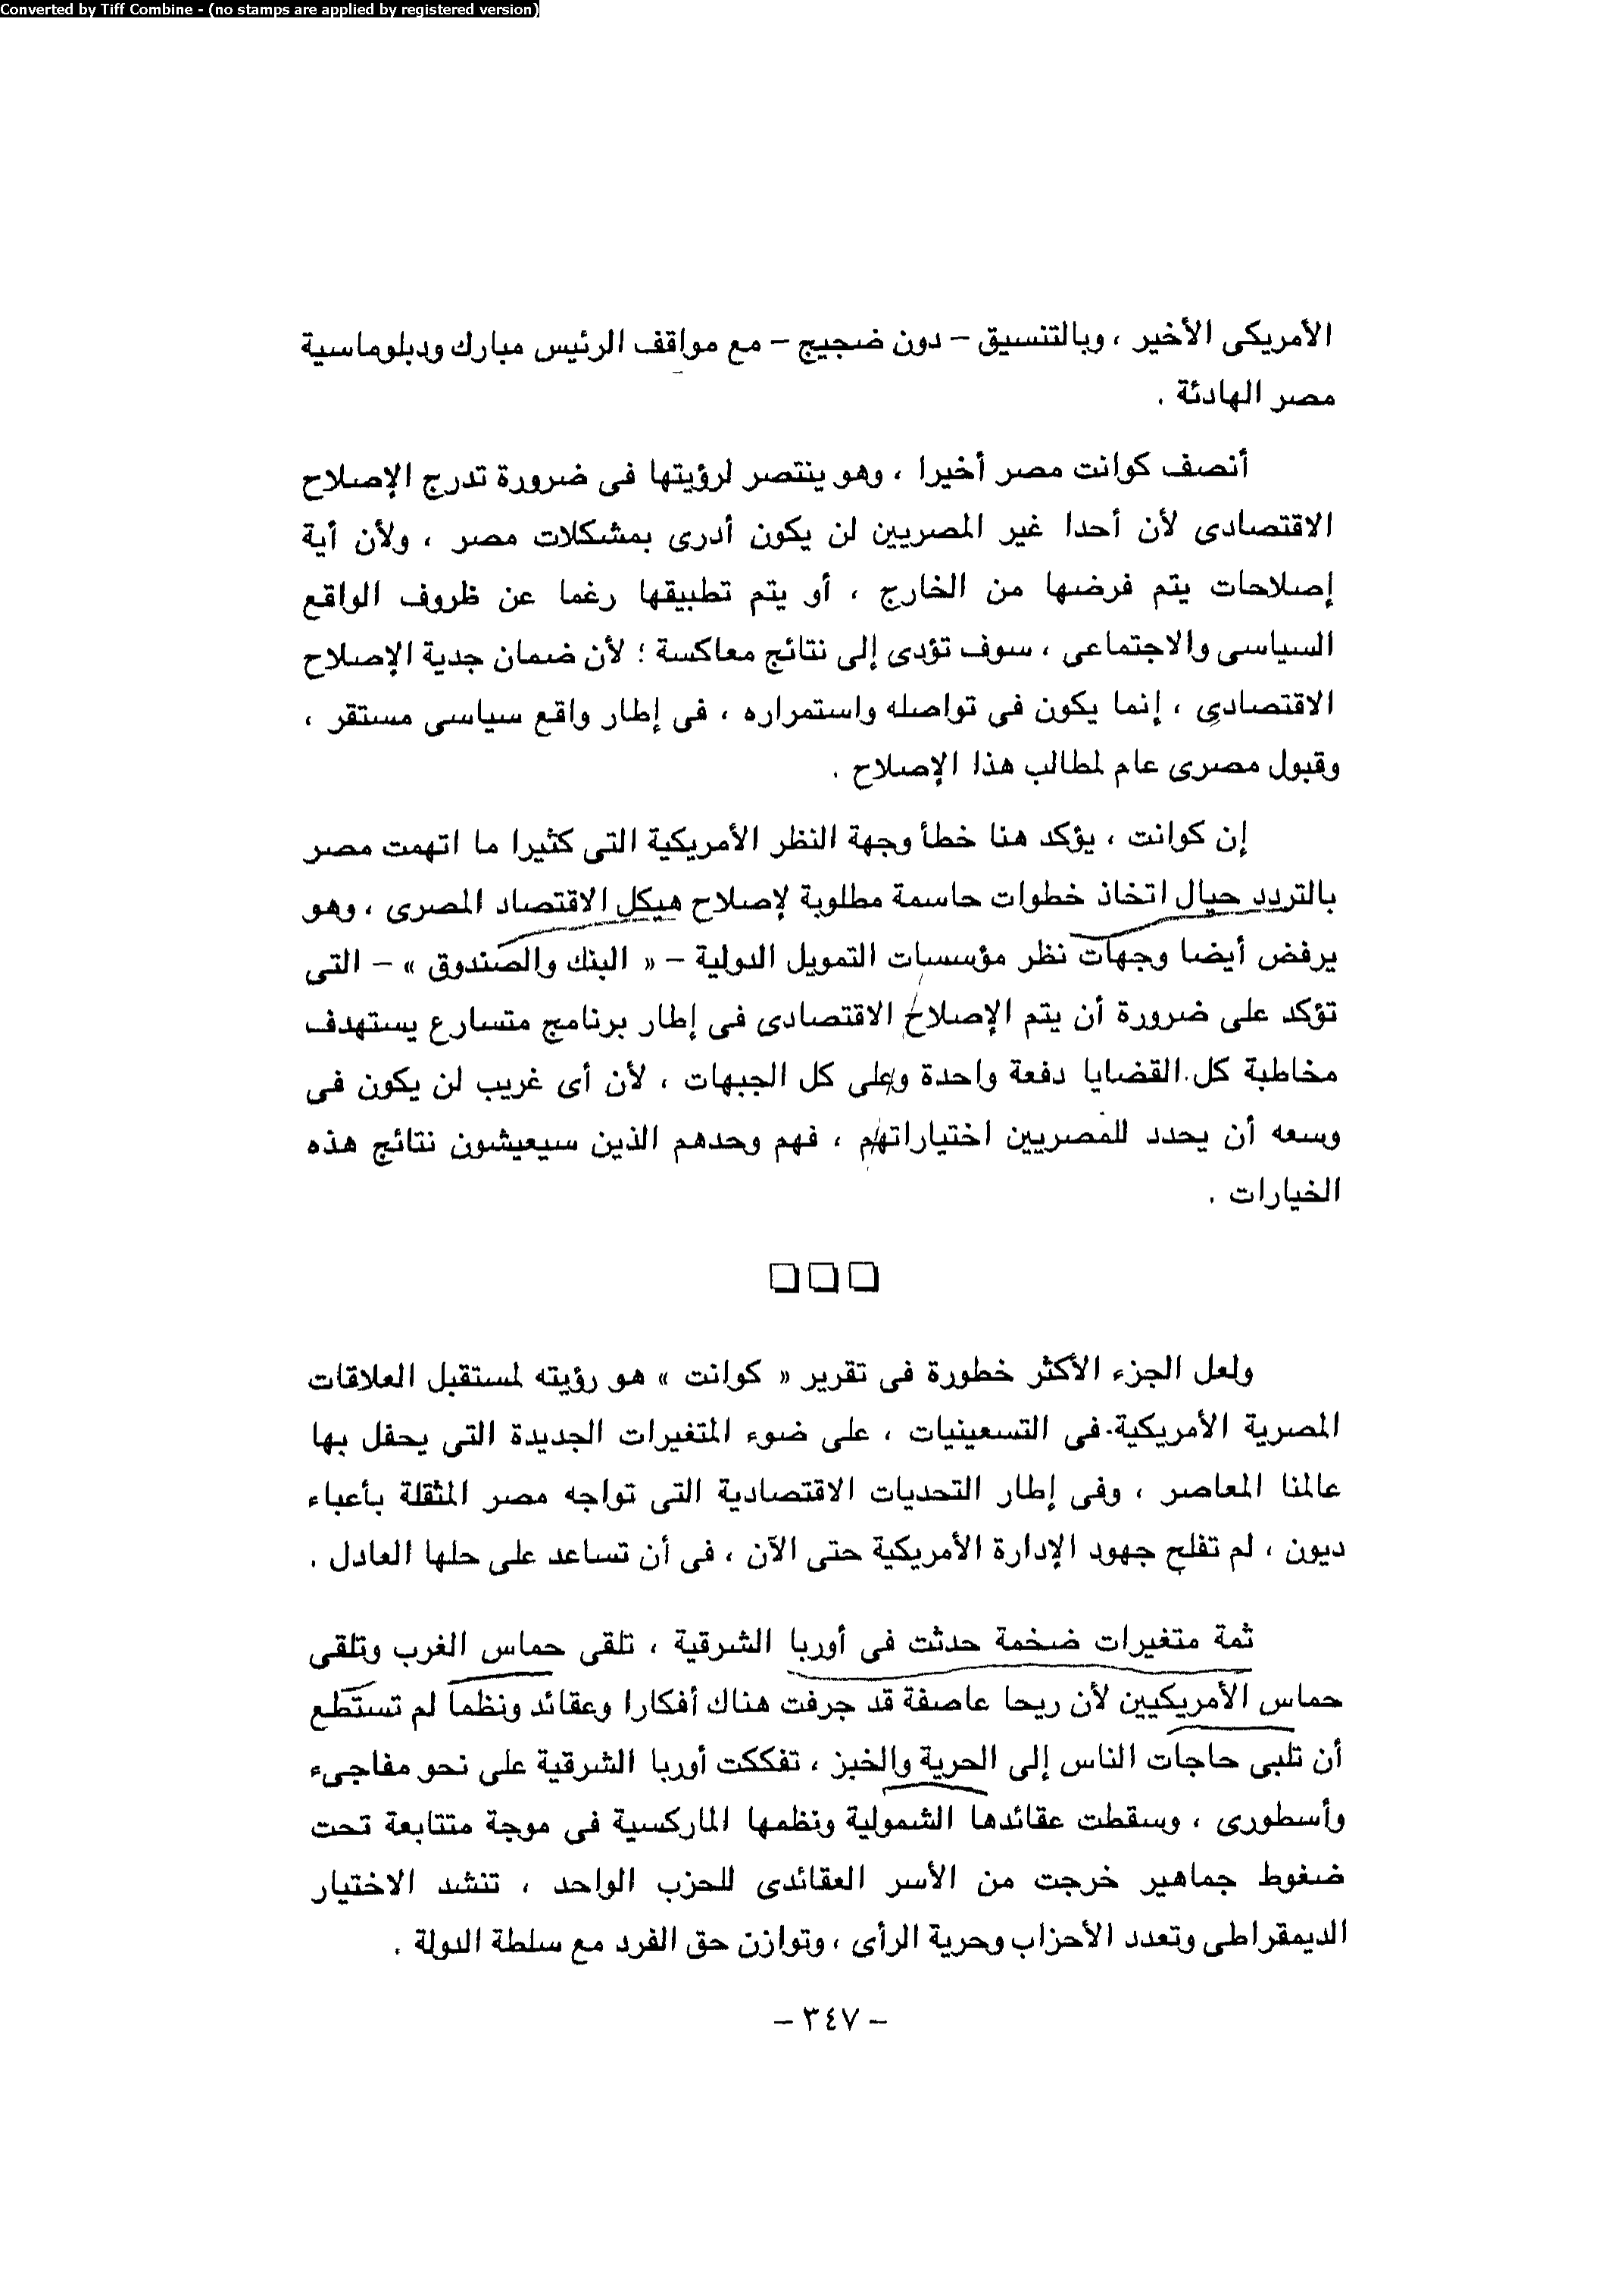 Converted by Tiff Combine - (no stamps are applied by registered version)
الأمريكى الأخير ، وبالتنسيق – دون ضجيج – مع مواقف الرئيس مبارك ودبلوماسية
مصر الهادئة .
أنصف كوانت مصر أخيرا ، وهو ينتصر لرؤيتها فى ضرورة تدرج الإصلاح
الاقتصادى لأن أحدا غير المصريين لن يكون أدرى بمشكلات مصر ، ولأن أية
إصلاحات يتم فرضها من الخارج ، أو يتم تطبيقها رغما عن ظروف الواقع
السياسى والاجتماعى ، سوف تؤدى إلى نتائج معاكسة ؛ لأن ضمان جدية الإصلاح
الاقتصادى ، إنما يكون فى تواصله واستمراره ، فى إطار واقع سياسى مستقر ،
وقبول مصرى عام لمطالب هذا الإصلاح .
إن كوانت ، يؤكد هنا خطأ وجهة النظر الأمريكية التى كثيرا ما اتهمت مصر
بالتردد حيال اتخاذ خطوات حاسمة مطلوبة لإصلاح هيكل الاقتصاد المصرى ، وهو
يرفض أيضا وجهات نظر مؤسسات التمويل الدولية – « البنك والصندوق » – التى
تؤكد على ضرورة أن يتم الإصلاح الاقتصادى فى إطار برنامج متسارع يستهدف
مخاطبة كل القضايا دفعة واحدة وعلى كل الجبهات ، لأن أى غريب لن يكون فى
وسعه أن يحدد للمصريين اختياراتهم ، فهم وحدهم الذين سيعيشون نتائج هذه
الخيارات .
□□□
ولعل الجزء الأكثر خطورة فى تقرير « كوانت » هو رؤيته لمستقبل العلاقات
المصرية الأمريكية فى التسعينيات ، على ضوء المتغيرات الجديدة التى يحفل بها
عالمنا المعاصر ، وفى إطار التحديات الاقتصادية التى تواجه مصر المثقلة بأعباء
ديون ، لم تفلح جهود الإدارة الأمريكية حتى الآن ، فى أن تساعد على حلها العادل .
ثمة متغيرات ضخمة حدثت فى أوربا الشرقية ، تلقى حماس الغرب وتلقى
حماس الأمريكيين لأن ريحا عاصفة قد جرفت هناك أفكارا وعقائد ونظما لم تستطع
أن تلبى حاجات الناس إلى الحرية والخبز ، تفككت أوربا الشرقية على نحو مفاجىء
وأسطورى ، وسقطت عقائدها الشمولية ونظمها الماركسية فى موجة متتابعة تحت
ضغوط جماهير خرجت من الأسر العقائدى للحزب الواحد ، تنشد الاختيار
الديمقراطى وتعدد الأحزاب وحرية الرأى ، وتوازن حق الفرد مع سلطة الدولة .
– ٣٤٧ –